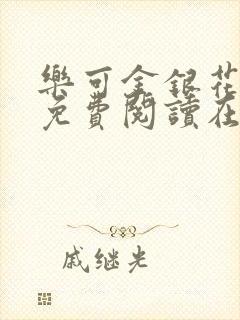 樂可金銀花
免費閱讀在
戚继光